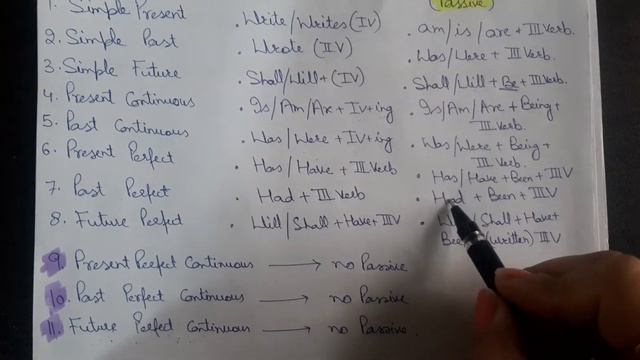 Passive
1. Simple Present . Write/Writes (IV) . am/is/are + III Verb.
2. Simple Past . Wrote (II V) . Was/Were + III Verb.
3. Simple Future . Shall/Will + (IV) . Shall/Will + Be + III Verb.
4. Present Continuous . Is/Am/Are + IV + ing . Is/Am/Are + Being + III Verb.
5. Past Continuous . Was/Were + IV + ing . Was/Were + Being + III Verb.
6. Present Perfect . Has/Have + III Verb . Has/Have + Been + III V
7. Past Perfect . Had + III Verb . Had + Been + III V
8. Future Perfect . Will/Shall + Have + III V . /Shall + Have + (written) III V
9. Present Perfect Continuous → no Passive
10. Past Perfect Continuous → no Passive
11. Future Perfect Continuous → no Passive.